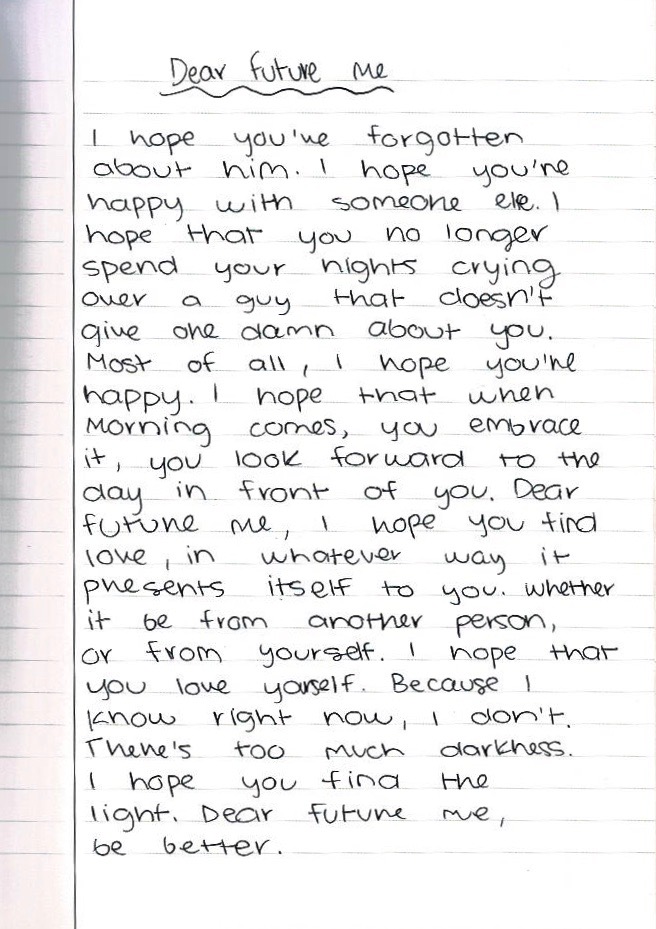 Dear future me
I hope you've forgotten
about him. I hope you're
happy with someone else. I
hope that you no longer
spend your nights crying
over a guy that doesn't
give one damn about you.
Most of all, I hope you're
happy. I hope that when
Morning comes, you embrace
it, you look forward to the
day in front of you. Dear
future me, I hope you find
love, in whatever way it
presents itself to you. Whether
it be from another person,
or from yourself. I hope that
you love yourself. Because I
know right now, I don't.
There's too much darkness.
I hope you find the
light. Dear future me,
be better.